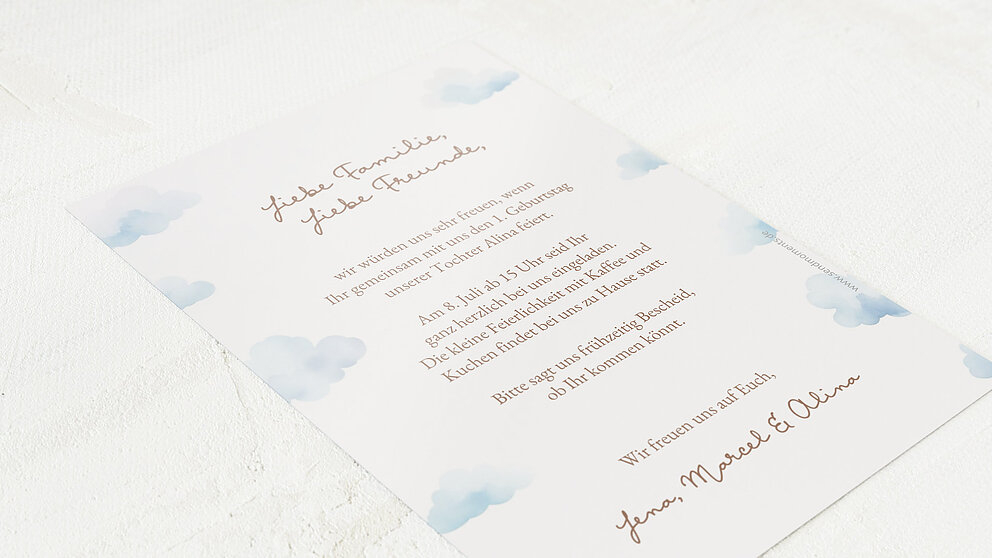 Liebe Familie,
liebe Freunde,
wir würden uns sehr freuen, wenn
Ihr gemeinsam mit uns den 1. Geburtstag
unserer Tochter Alina feiert.
Am 8. Juli ab 15 Uhr seid Ihr
ganz herzlich bei uns eingeladen.
Die kleine Feierlichkeit mit Kaffee und
Kuchen findet bei uns zu Hause statt.
Bitte sagt uns frühzeitig Bescheid,
ob Ihr kommen könnt.
Wir freuen uns auf Euch,
Jena, Marcel & Alina
www.sendmoments.de